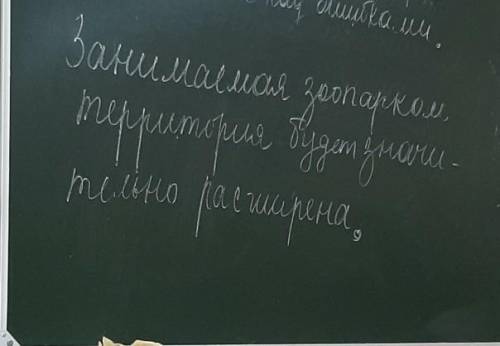 ошибками.
Занимаемая зоопарком
территория будет значи-
тельно расширена.